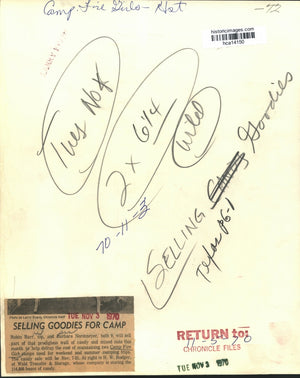 Camp Fire Girls - Hst
-72
historicimages.com
hca14150
Tues Nov
2 x 6 1/4
Wild
70-11-3
SELLING Goodies
Texas PG-1
TUE NOV 3 1970
SELLING GOODIES FOR CAMP
Robin Barr, top, and Barbara Normeyer, both 9, will ask
part of that prodigious wall of candy and mixed nuts this
month to help defray the cost of maintaining two Camp Fire
Girls camps used for weekend and summer camping trips.
The candy sale will be Nov. 7-21. At right is H. W.
of Wald Transfer & Storage, whose company is storing the
114,000 boxes of candy.
RETURN to:
CHRONICLE FILES
TUE NOV 3 1970